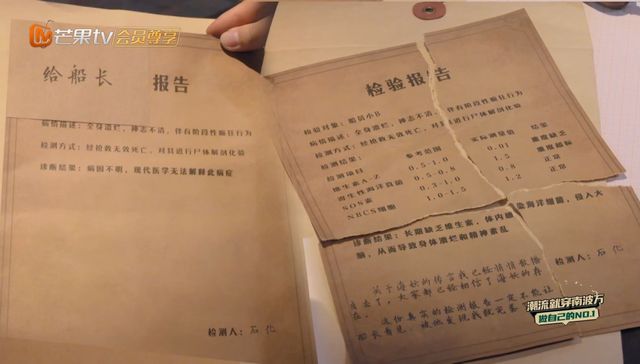 芒果tv 会员尊享
给船长 报告
病情描述：全身溃烂，神志不清，伴有阶段性癫狂行为
检测方式：经抢救无效死亡，对其进行尸体解剖化验
诊断结果：病因不明，现代医学无法解释此病症
检测人：石化
检验报告
检验对象：船员小B
病情描述：全身溃烂，神志不清，伴有阶段性癫狂行为
检测方式：经抢救无效死亡，对其进行尸体解剖化验
检测结果：
检测项目 参考范围 实际测量值 结果
维生素A-Z 0.5-1.0 0.01 重度缺乏
寄生性海洋真菌 0.5-1.0 1.5 重度超标
SOS素 0.3-1.0 0.8 正常
NBCS细胞 1.0-1.5 1.2 正常
诊断结果：长期缺乏维生素，体内感染海洋细菌，侵入大
脑，从而导致身体溃烂和精神紊乱
检测人：石化
关于海妖的传言我已经悄悄散播
出去了，大家都已经相信了海妖的存
在。
这份真实的检测报告一定不能让
船长看见，被他发现我就完蛋
潮流就穿南波万
做自己的NO.1